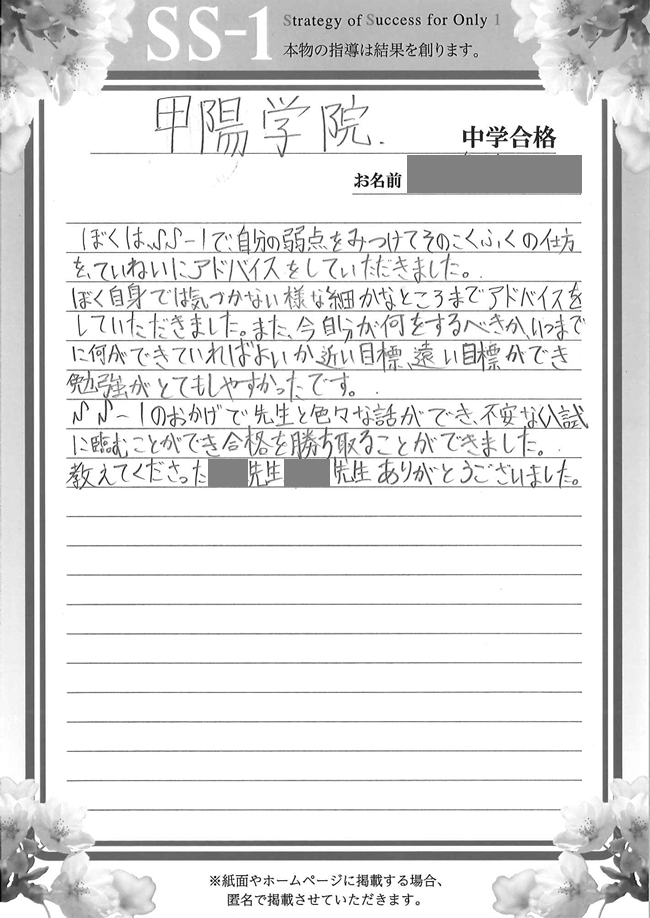 SS-1
Strategy of Success for Only 1
本物の指導は結果を創ります。
甲陽学院.
中学合格
お名前
ぼくは、SS-1で、自分の弱点をみつけてそのこくふくの仕方
を、ていねいにアドバイスをしていただきました。
ぼく自身では気づかない様な細かなところまでアドバイスを
していただきました。また、今自分が何をするべきか、いつまで
に何ができていればよいか、近い目標、遠い目標ができ
勉強がとてもしやすかったです。
SS-1のおかげで先生と色々な話ができ、不安な入試
に臨むことができ合格を勝ち取ることができました。
教えてくださった 先生 先生ありがとうございました。
※紙面やホームページに掲載する場合、
匿名で掲載させていただきます。